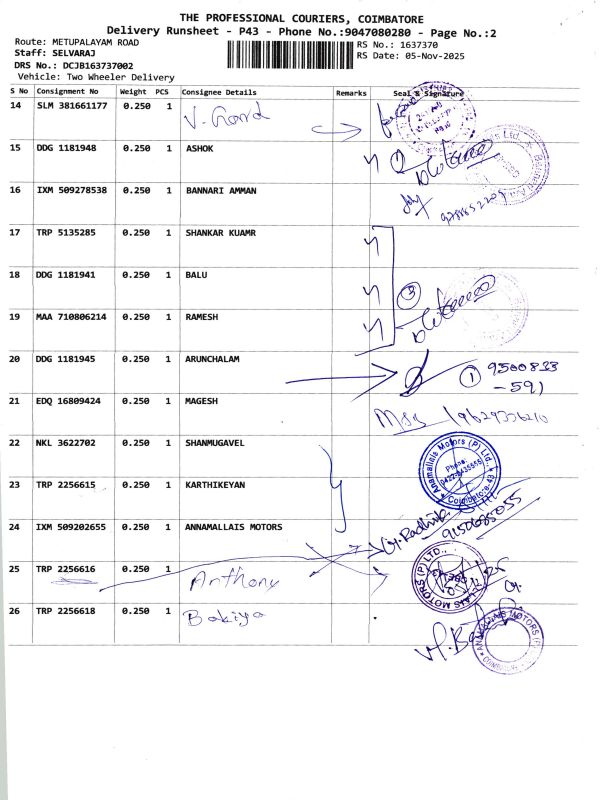 THE PROFESSIONAL COURIERS, COIMBATORE
Delivery Runsheet - P43 - Phone No.:9047080280 - Page No.:2
Route: METUPALAYAM ROAD
RS No.: 1637370
Staff: SELVARAJ
RS Date: 05-Nov-2025
DRS No.: DCJB163737002
Vehicle: Two Wheeler Delivery
S No Consignment No Weight PCS Consignee Details Remarks Seal & Signature
14 SLM 381661177 0.250 1
15 DDG 1181948 0.250 1 ASHOK
16 IXM 509278538 0.250 1 BANNARI AMMAN
17 TRP 5135285 0.250 1 SHANKAR KUAMR
18 DDG 1181941 0.250 1 BALU
3
19 MAA 710806214 0.250 1 RAMESH
20 DDG 1181945 0.250 1 ARUNCHALAM
1 9500833
-591
21 EDQ 16809424 0.250 1 MAGESH
22 NKL 3622702 0.250 1 SHANMUGAVEL
Anamallais Motors (P) Ltd.
Phone:
23 TRP 2256615 0.250 1 KARTHIKEYAN
24 IXM 509202655 0.250 1 ANNAMALLAIS MOTORS
25 TRP 2256616 0.250 1 Anthony
26 TRP 2256618 0.250 1 Bakiya